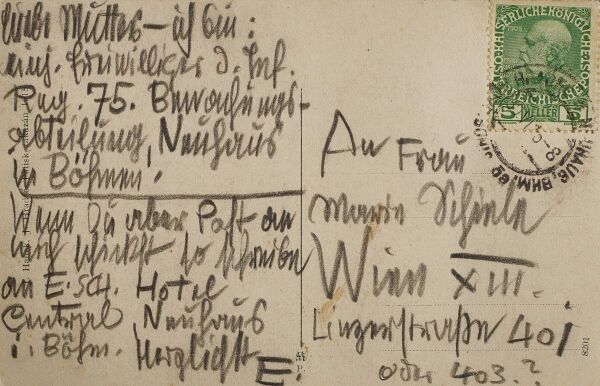 liebe Mutter – ich bin:
einj. freiwilliger d. Inf.
Reg. 75. Bewachungs-
abteilung, Neuhaus
in Böhmen.
Wenn Du aber Post an
mich schickst so schreibe
an E. SCH. Hotel
Central Neuhaus
i. Böhm. Herzlichst
E.
An Frau
Marie Schiele
Wien XIII.
Linzerstraße 401
oder 403.?
KAISERLICHE KÖNIGLICHE
1908
ÖSTERREICHISCHE POST
5 HELLER 5
8201